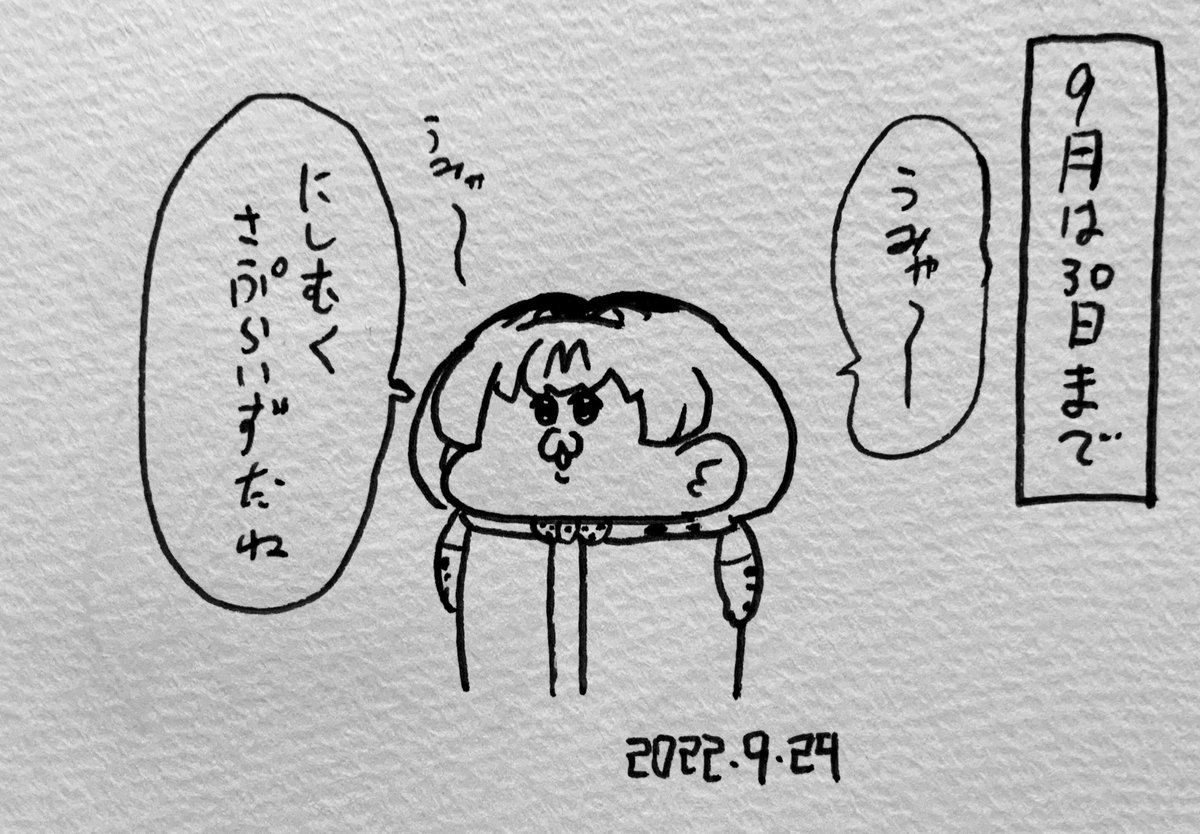 9月は30日まで
うみゃ〜
うみゃ〜
にしむく
さぷらいずだね
2022.9.29